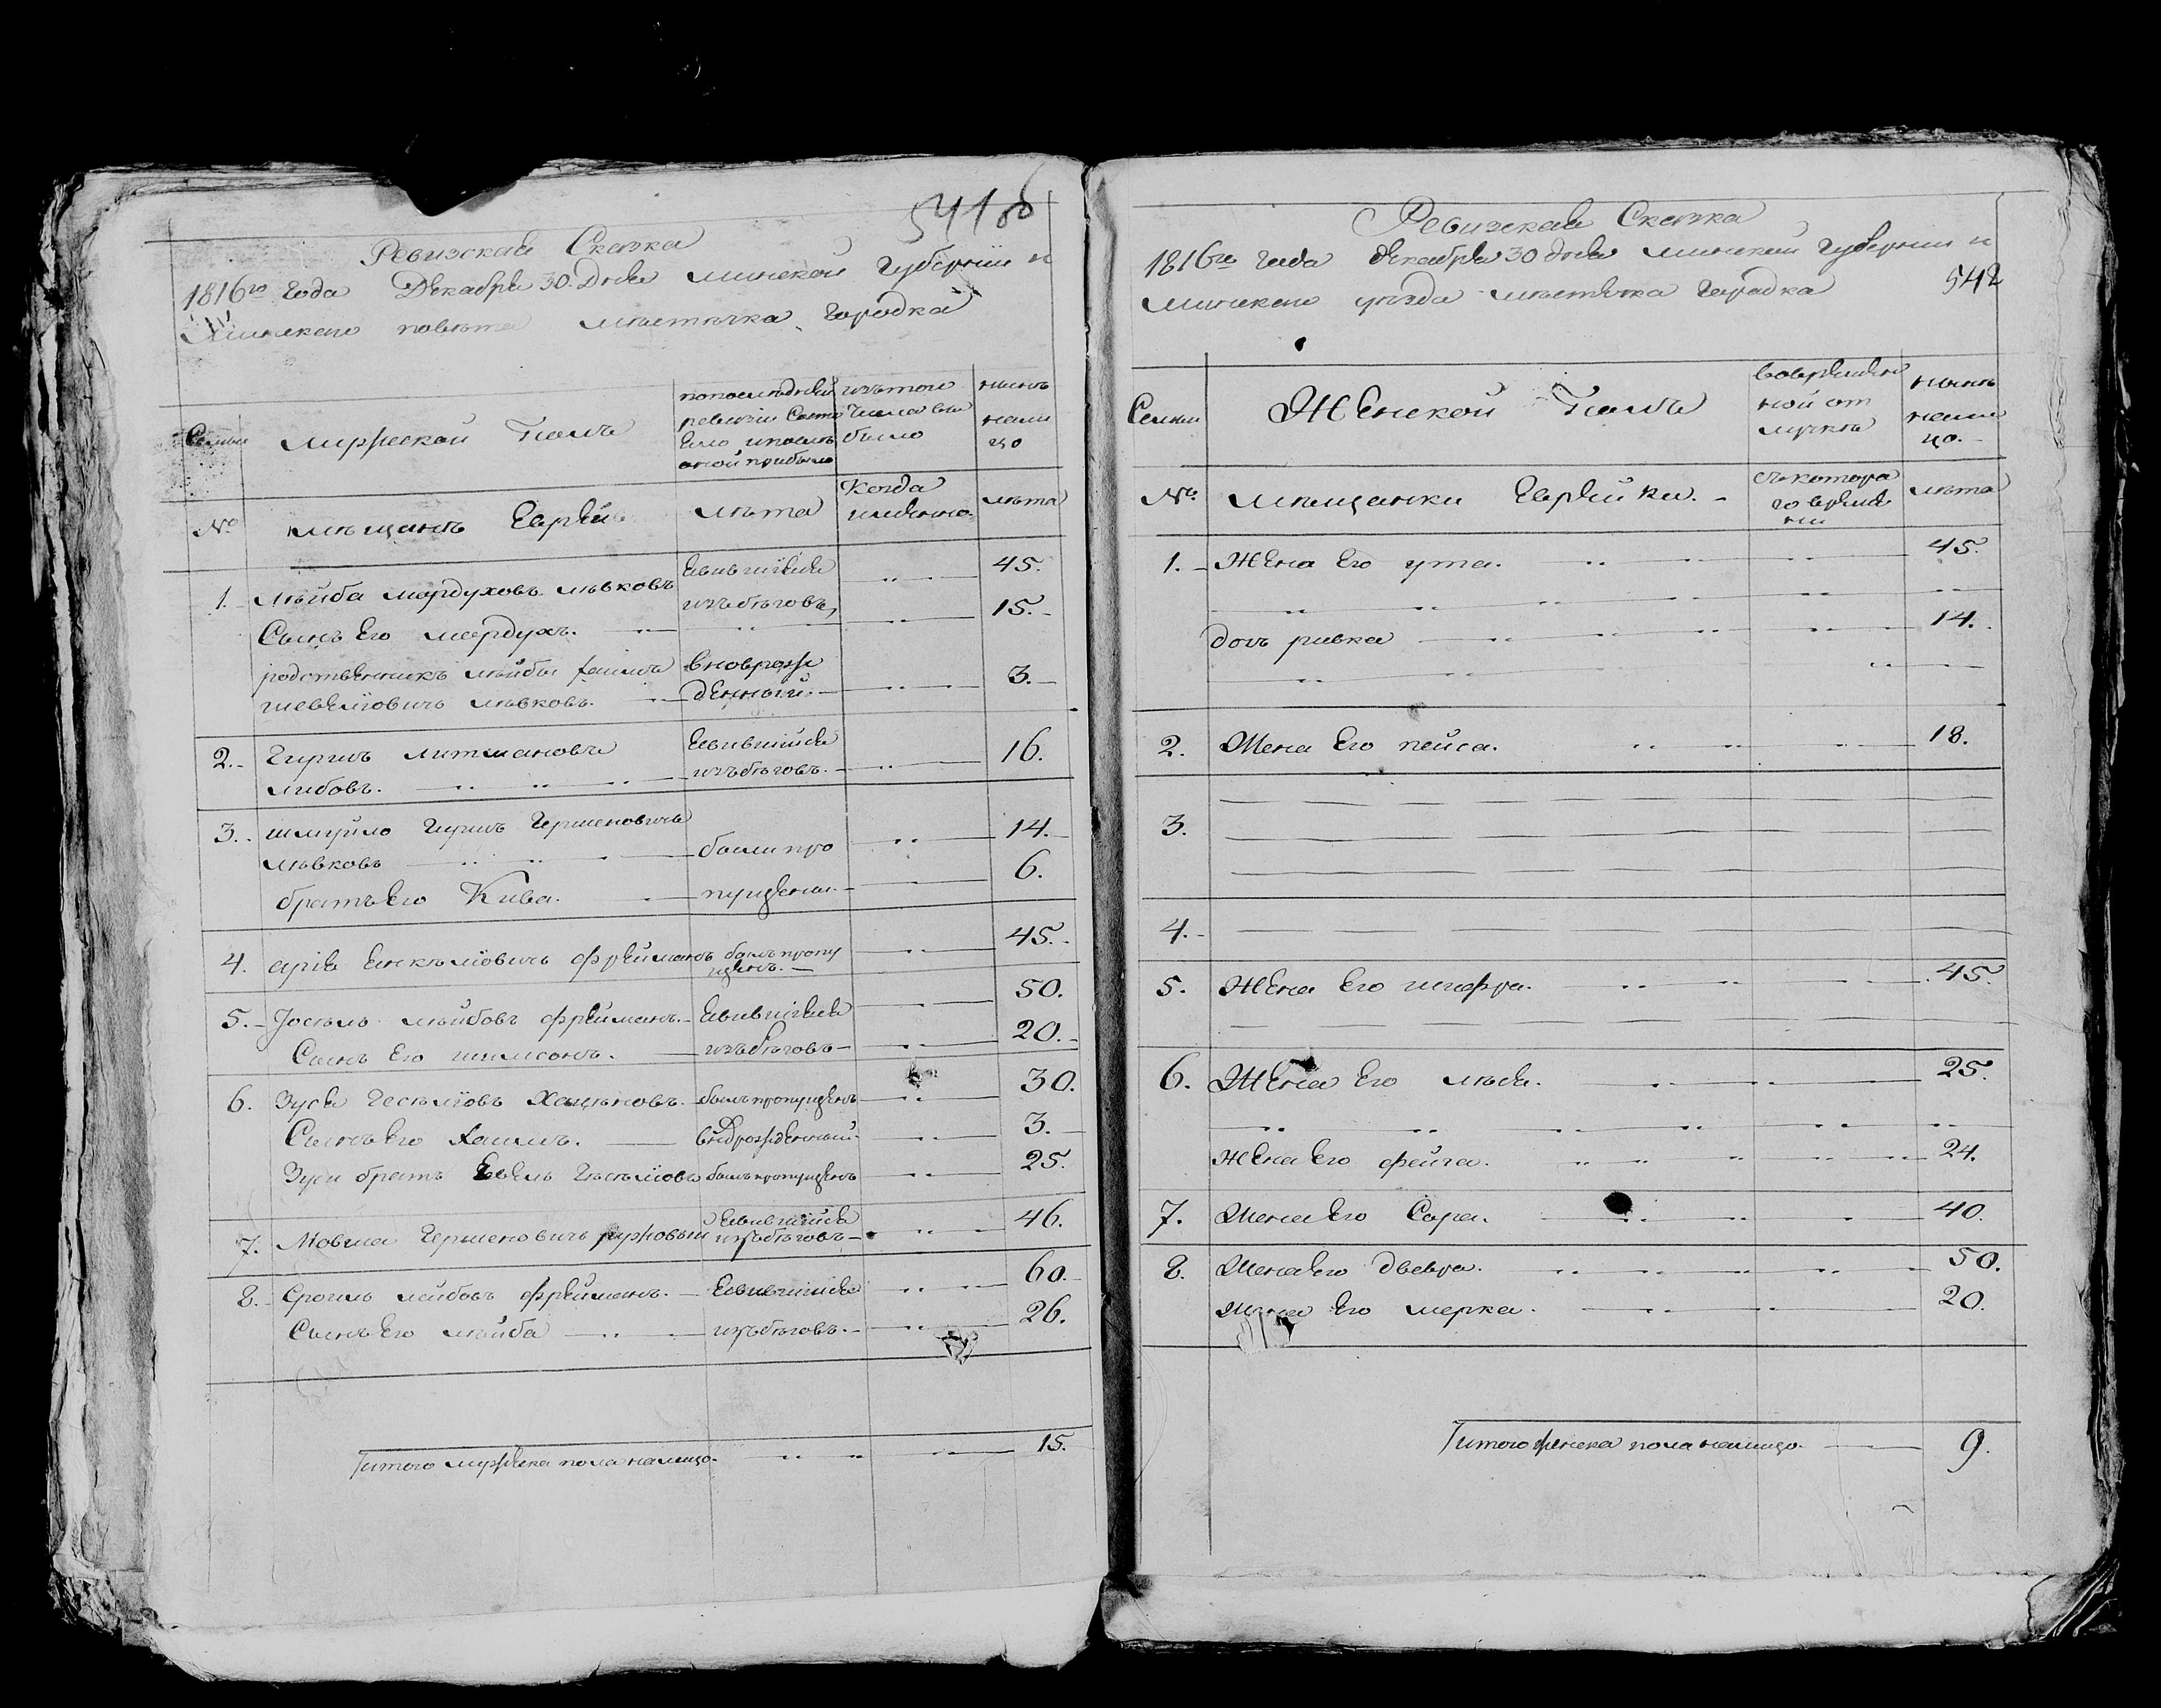 541 об
Ревизская Сказка
1816го года Декабря 30. Дня минской губернии и
Минскаго повета местечка городка
Семьи
мужеской Полъ
по последней
ревизии состо
яло и после
оной прибыло
изъ того
числа вы
было
ныне
нали
цо
№
мещанъ Еврей
лета
Когда
именно
лета
1. Лейба Мордуховъ Левковъ явившійся изъ беговъ 45.
Сынъ Его мордухъ. 15.
родственникъ лейбы хаимъ вновьрож
шевелiовичъ левковъ. денный. 3.
2. Гиршъ литмановъ явившійся
либовъ. изъ беговъ. 16.
3. шмуйло Гиршъ Гершеновичъ
левковъ были про 14.
братъ Его Кива. пущены. 6.
4. арiя янкелiовичъ фрейманъ былъ пропу
щенъ. 45.
5. Іосель лейбовъ фрейманъ. явившійся 50.
Сынъ Его шимсонъ. изъ беговъ 20.
6. Зуся Геселiовъ Хацкновъ. былъ пропущенъ 30.
Сынъ Его Хаимъ. вновьрожденный. 3.
Зуси братъ Евель Геселiовъ былъ пропущенъ 25.
7. Мовша Гершеновичъ явившійся изъ беговъ 46.
8. Сроль лейбовъ фрейманъ. явившійся 60.
Сынъ Его лейба изъ беговъ. 26.
Итого мужеска пола налицо. 15.
Ревизская Сказка
1816го года декабря 30 дня минской губернии и
минскаго уезда местечка городка
542
Семьи
Женской Полъ
во времен
ной от
лучке
ныне
нали
цо.
№
мещанки Еврейки.
съ котора
го време
ни
лета
1. Жена Его ута. 45.
дочь ривка 14.
2. Жена Его пейса. 18.
3.
4.
5. Жена Его шифра. 45.
6. Жена Его леся. 25.
Жена Его фейга. 24.
7. Жена Его Сора. 40.
8. Жена Его двевра. 50.
Жена Его мерка. 20.
Итого женска пола налицо. 9.